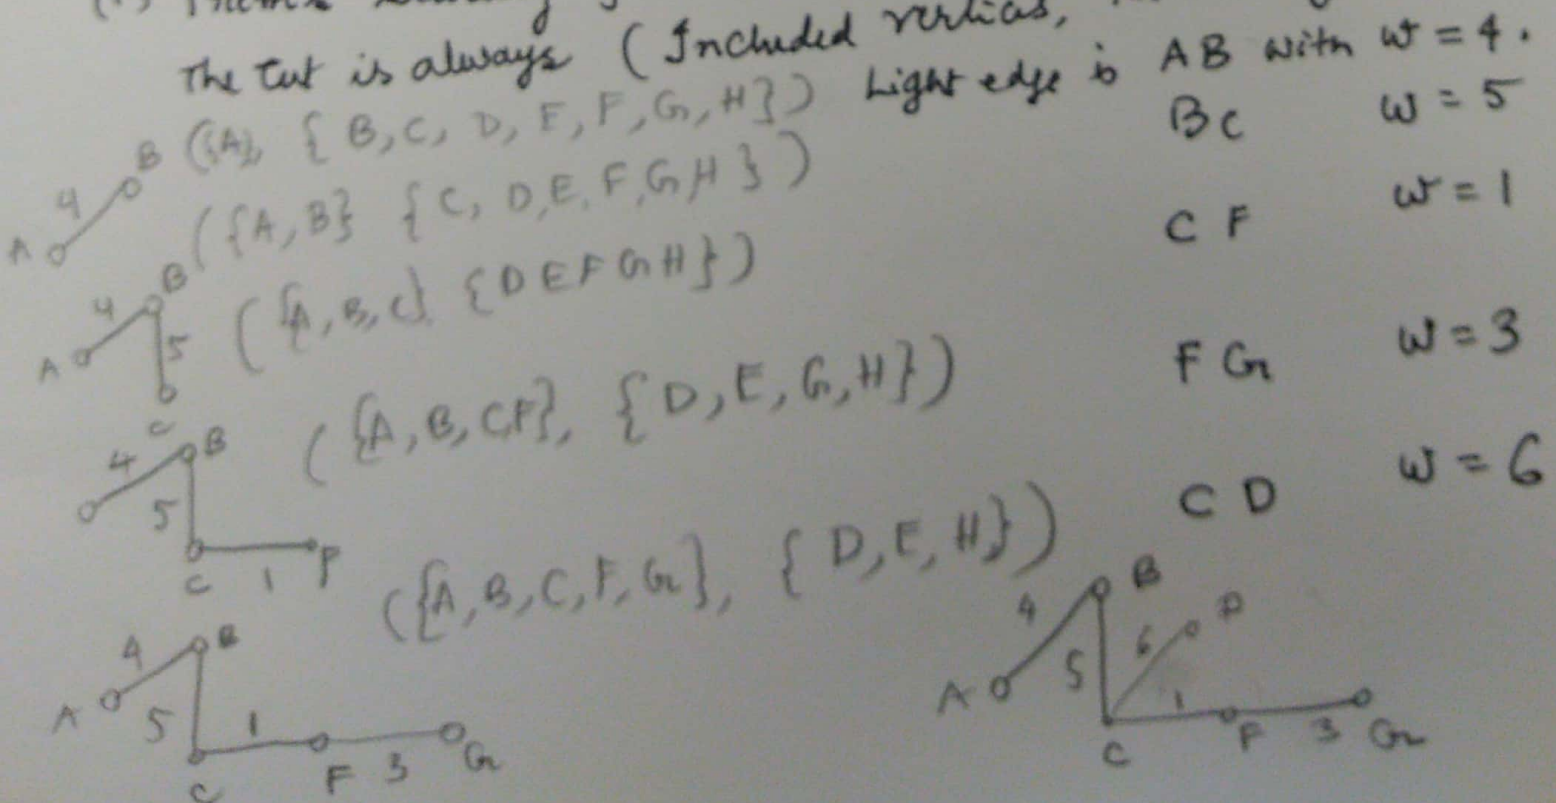 The Cut is always (Included vertices,
({A}, { B, C, D, E, F, G, H}) Light edge is AB with w = 4.
({A, B} {C, D, E, F, G, H}) BC w = 5
({A, B, C} {D E F G H}) CF w = 1
({A, B, C, F}, {D, E, G, H}) FG w = 3
({A, B, C, F, G}, {D, E, H}) CD w = 6
4 B
A
4 B
A 5
C
4 B
5
C 1 F
4 B
A 5 1
C F 3 G
4 B
6 D
A 5 1
C F 3 G